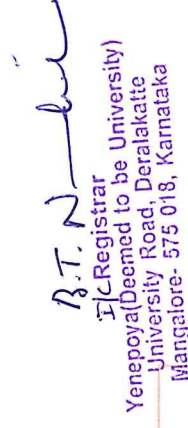 B.T. N
I/c Registrar
Yenepoya(Deemed to be University)
University Road, Deralakatte
Mangalore- 575 018, Karnataka